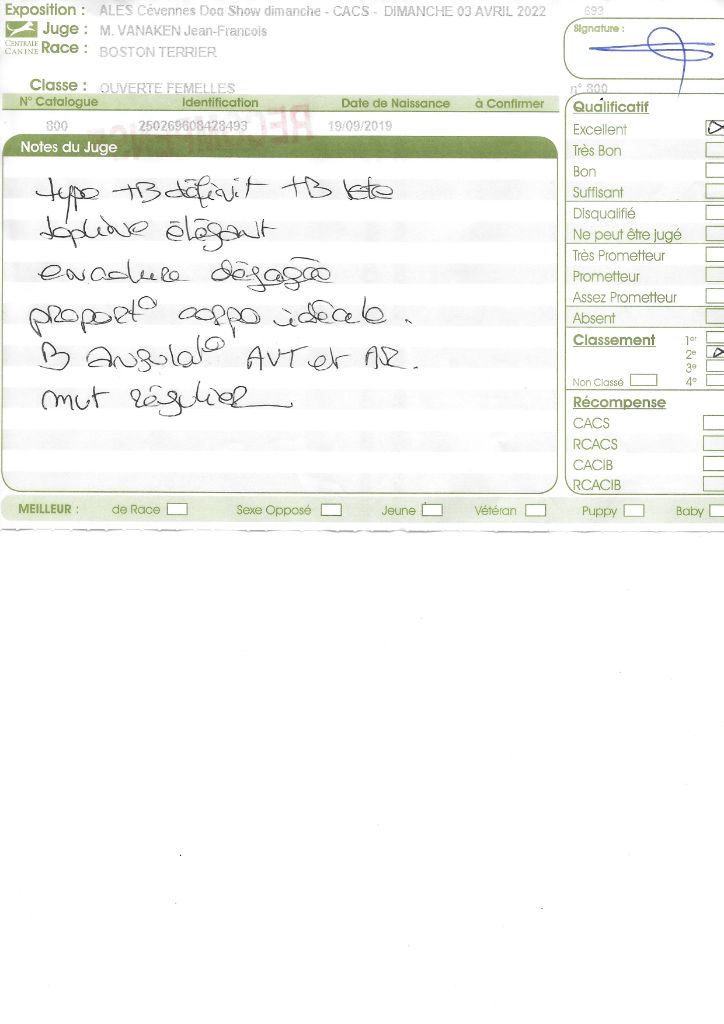 Exposition : ALES Cévennes Dog Show dimanche - CACS - DIMANCHE 03 AVRIL 2022 693
Juge : M. VANAKEN Jean-Francois
CENTRALE CANINE
Race : BOSTON TERRIER
Signature :
Classe : OUVERTE FEMELLES n° 800
N° Catalogue Identification Date de Naissance à Confirmer
800 250269608428493 19/09/2019
Notes du Juge
type TB définit TB tete
topline élégant
encolure dégagée
proport° corps idéale.
B Angulat° AVT et AR.
mvt régulier
Qualificatif
Excellent
Très Bon
Bon
Suffisant
Disqualifié
Ne peut être jugé
Très Prometteur
Prometteur
Assez Prometteur
Absent
Classement 1er
2e
3e
Non Classé 4e
Récompense
CACS
RCACS
CACIB
RCACIB
MEILLEUR : de Race Sexe Opposé Jeune Vétéran Puppy Baby